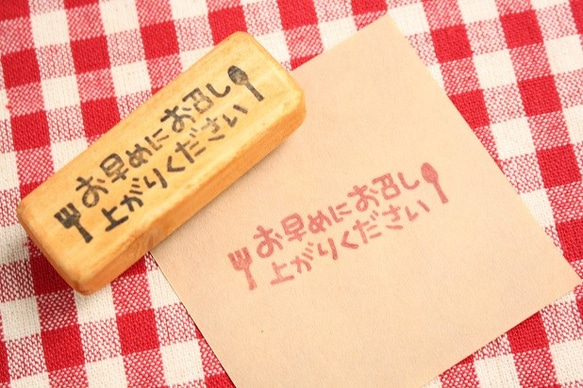 お早めにお召し
上がりください
お早めにお召し
上がりください